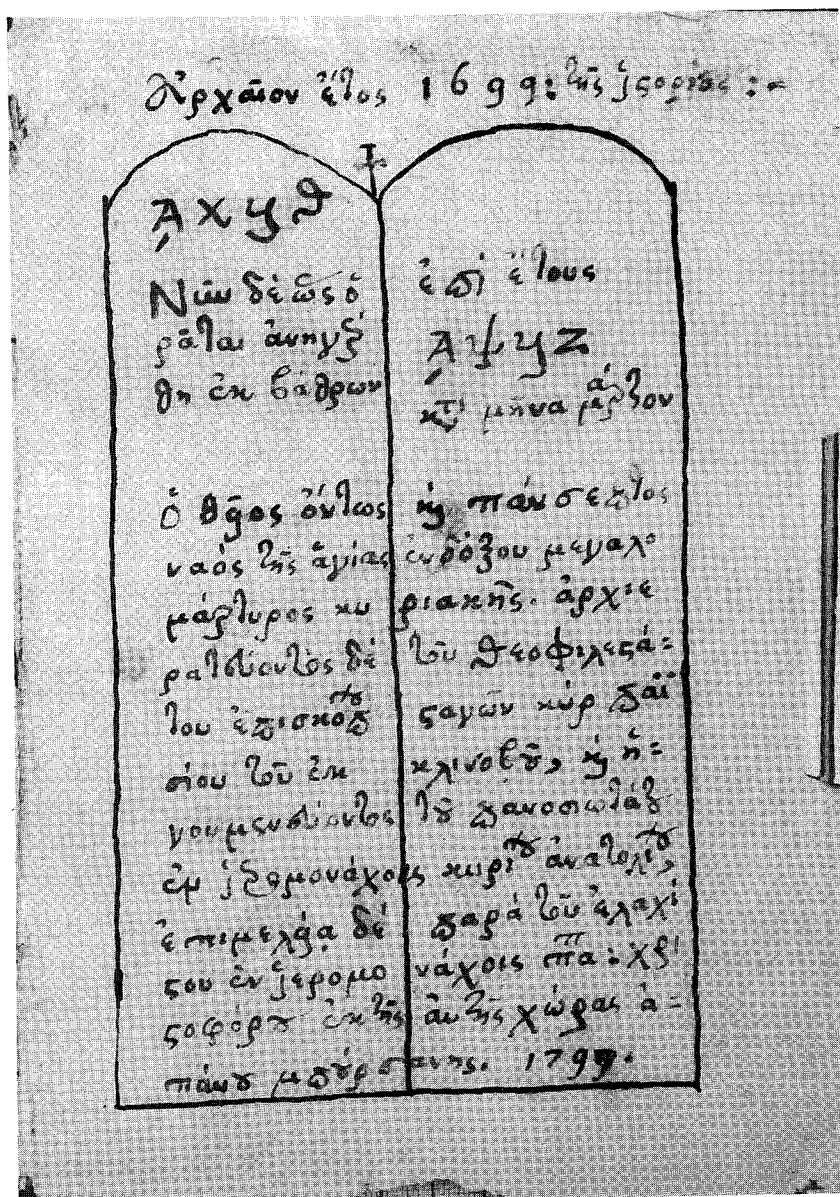 Ἀρχαῖον ἔτος 1699: τῆς ἱστορίας :-
͵ΑΧϞΘ
Νῦν δὲ ὡς ὁ
ρᾶται ἀνηγέρ
θη ἐκ βάθρων
ἐπὶ ἔτους
͵ΑΨϞΖ
κτ̀ μῆνα μάρτον
ὁ θεῖος ὄντως κ̀ πάνσεπτος
ναὸς τῆς ἁγίας ἐνδόξου μεγαλο
μάρτυρος κυ ριακῆς. ἀρχιε
ρατεύοντος δὲ τοῦ θεοφιλεστά=
του ἐπισκόπου σταγῶν κὺρ παϊ
σίου τοῦ ἐκ κλινοβοῦ, κ̀ ἡ=
γουμενεύοντος τοῦ πανοσιωτάτου
ἐν ἱερομονάχοις κυρίου ἀνατολίου,
ἐπιμελείᾳ δὲ παρὰ τοῦ ἐλαχί
στου ἐν ἱερομο νάχοις παπα: χρι
στοφόρου ἐκ τῆς αὐτῆς χώρας ἀ=
πάνου 1797.